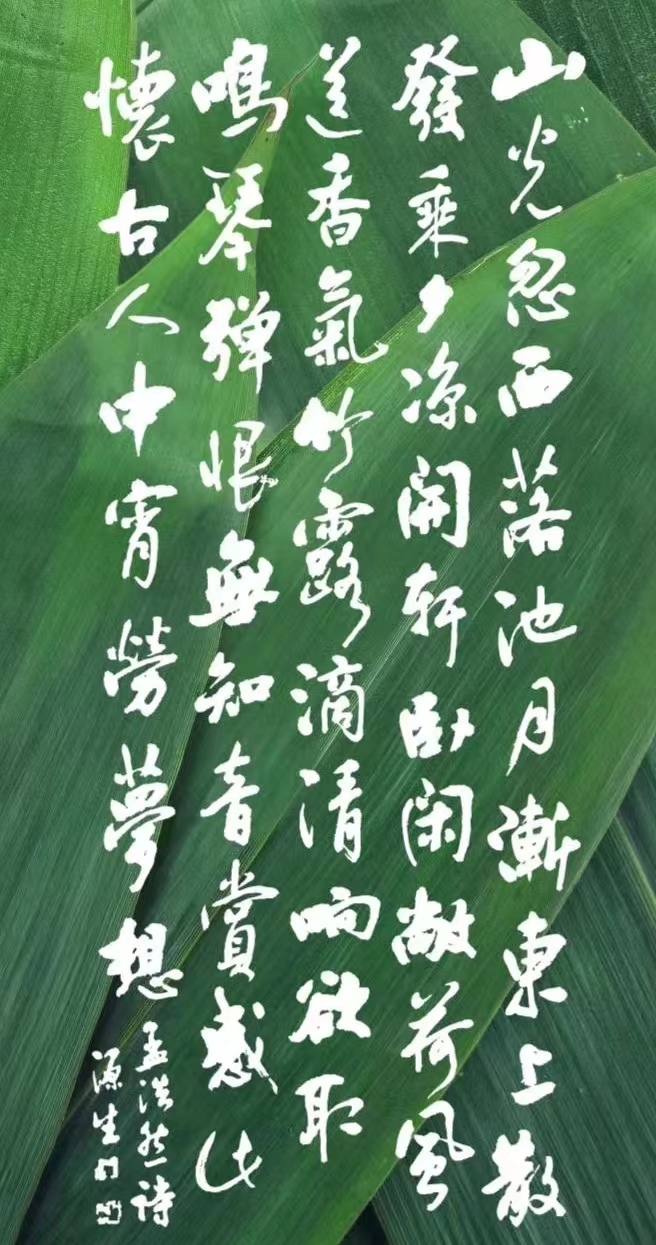 山光忽西落池月漸東上散
發乘夕凉開軒卧闲敞荷風
送香氣竹露滴清响欲取
鳴琴弹恨無知音賞感此
懷古人中宵勞夢想
孟浩然诗
源生